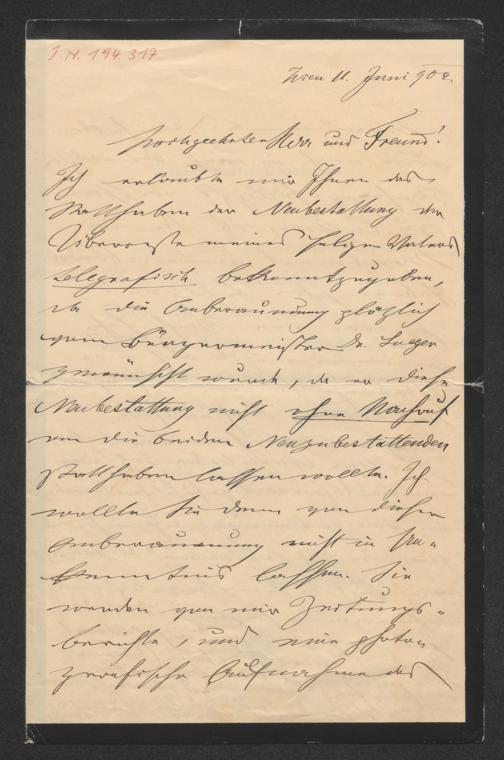 I. N. 194.317
Wien 11. Juni 904.
Hochgeehrter Herr und Freund!
Ich erlaubte mir Ihnen das
Statthaben der Neubestattung der
Überreste meines seligen Vaters
telegrafisch bekanntzugeben,
da die Anberaumung plötzlich
vom Bürgermeister Dr. Lueger
gewünscht wurde, da er diese
Neubestattung nicht ohne Nachruf
an die beiden Neuzubestattenden
statthaben lassen wollte. Ich
wollte Sie denn von dieser
Anberaumung nicht in Un-
kenntnis lassen. Sie
werden von mir Zeitungs-
berichte, und eine photo-
grafische Aufnahme des